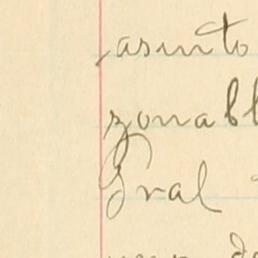 asunto
zonabl
Gral